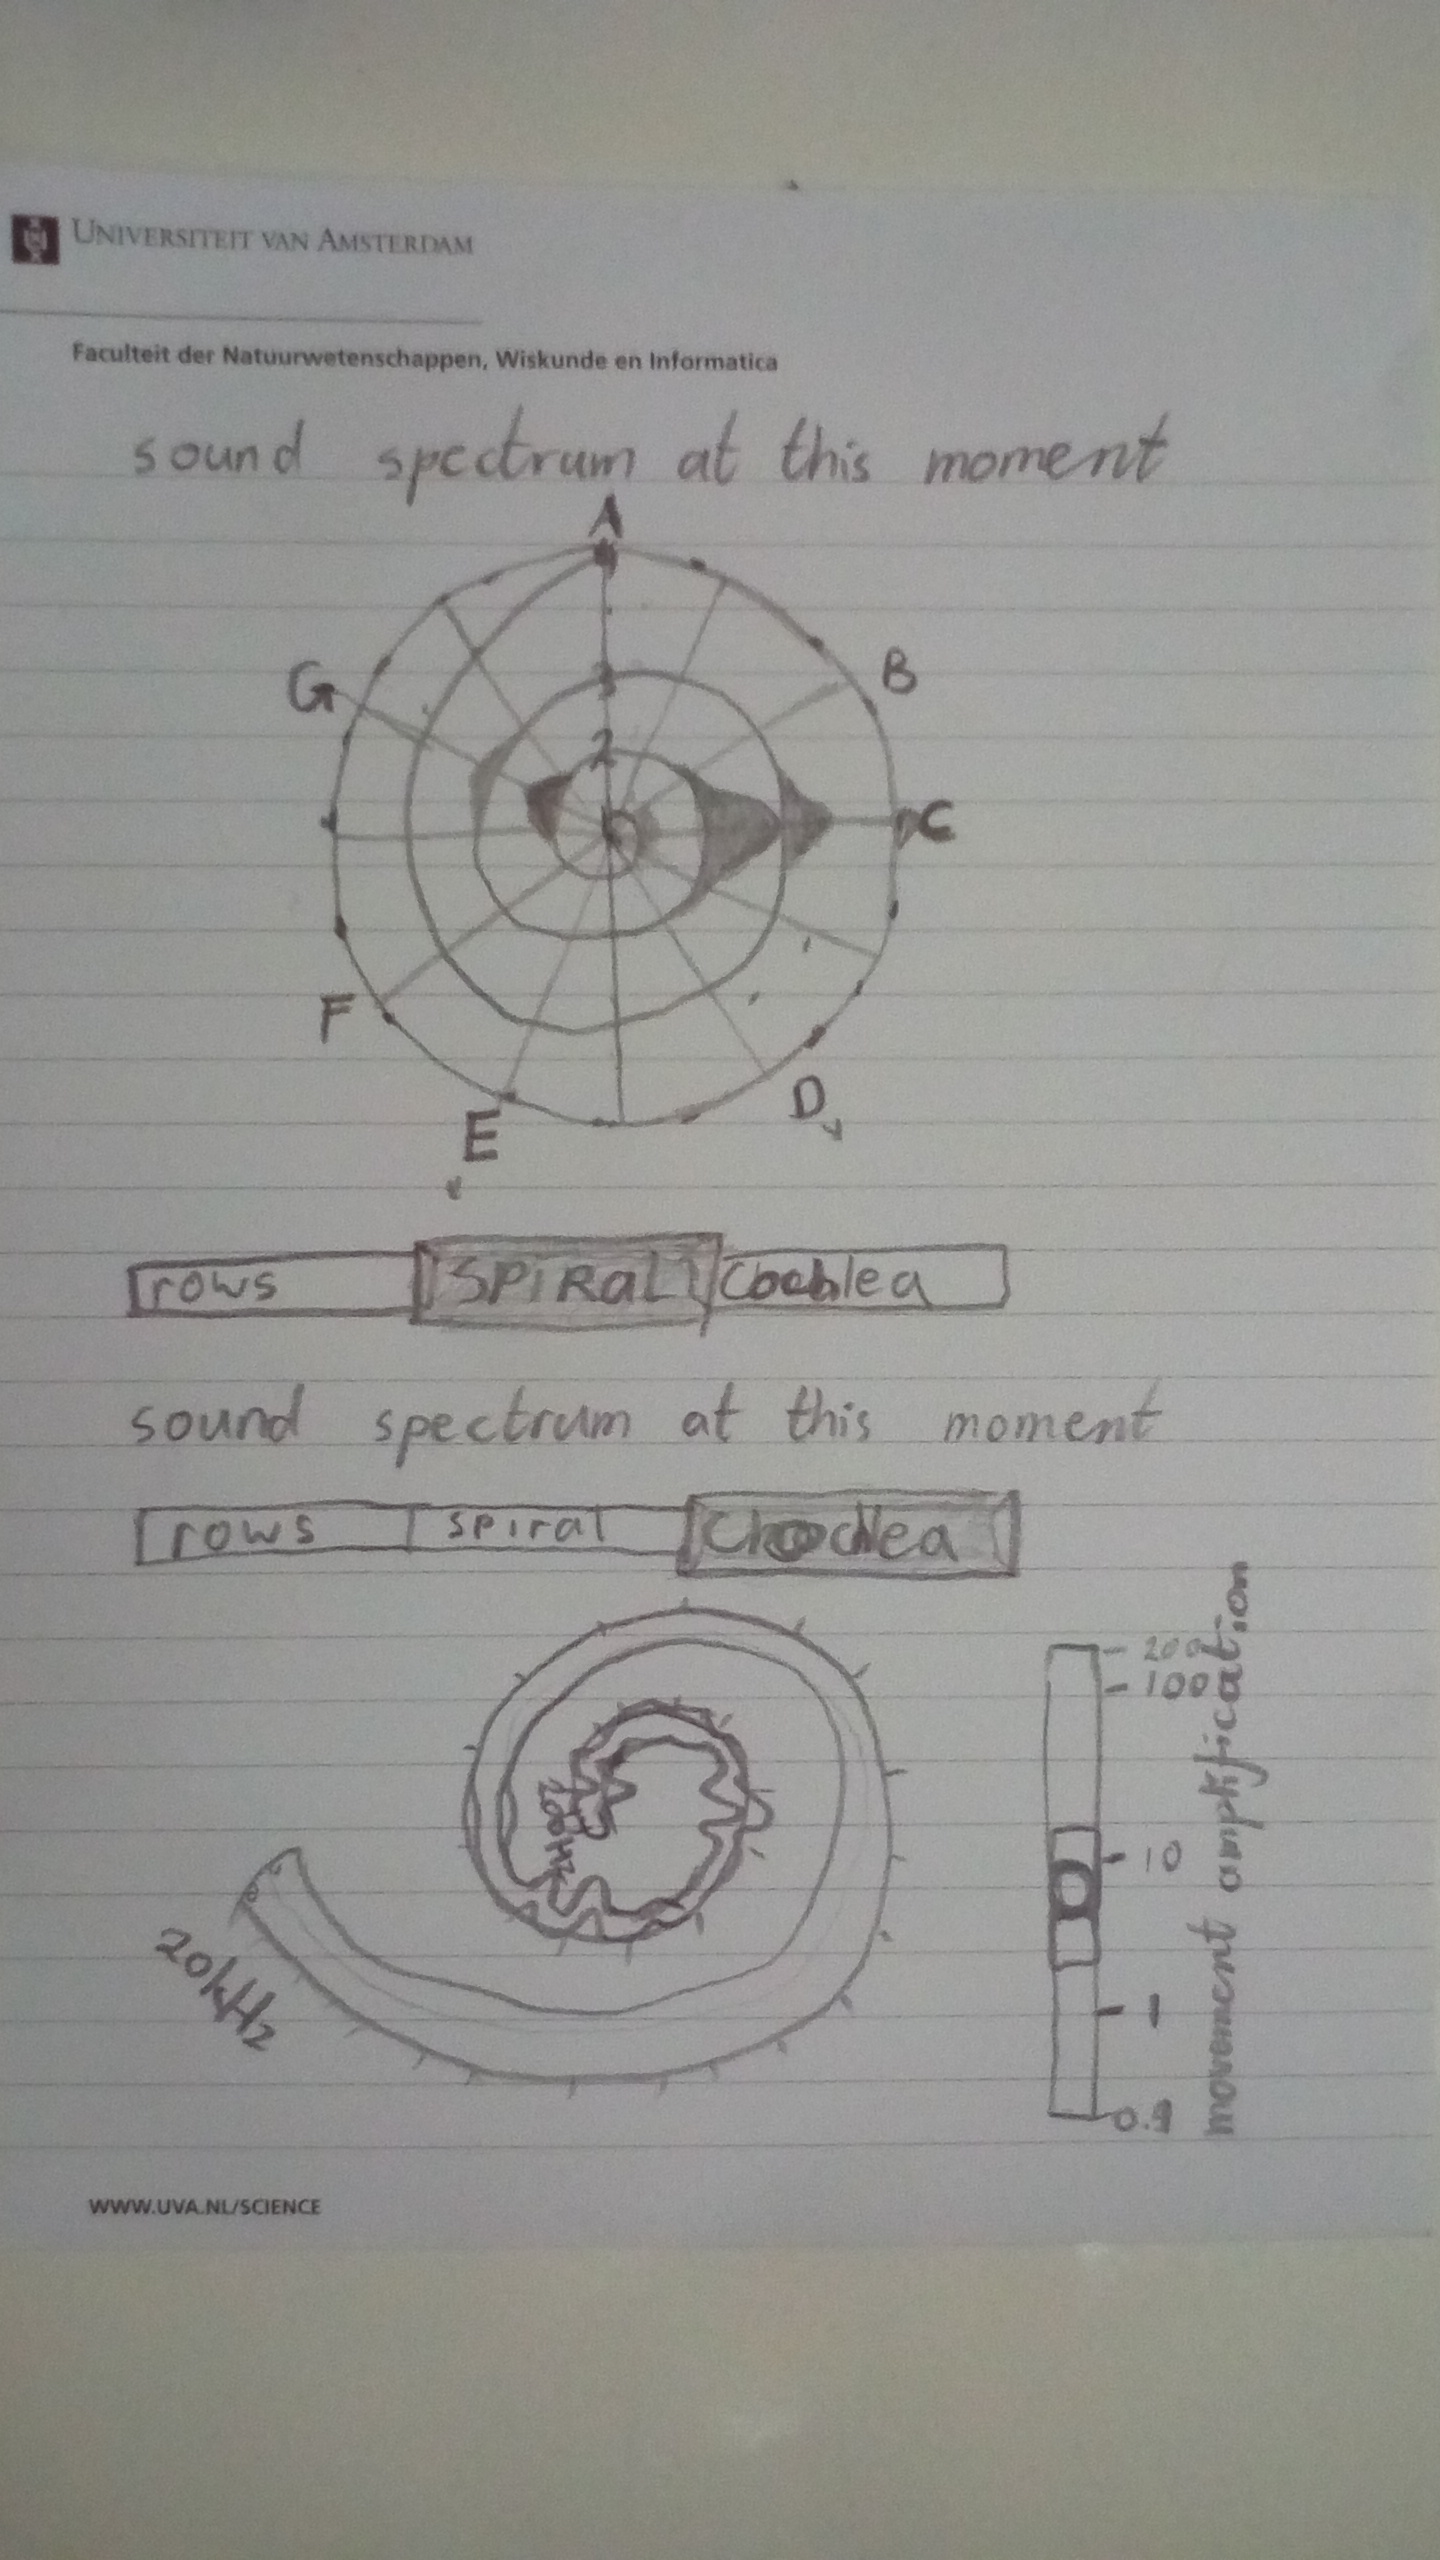 UNIVERSITEIT VAN AMSTERDAM
Faculteit der Natuurwetenschappen, Wiskunde en Informatica
sound spectrum at this moment
A
B
G
3
2
C
F
D
E
rows SPIRAL Cochlea
sound spectrum at this moment
rows spiral Cochlea
200
100
10
1
movement amplification
20kHz
WWW.UVA.NL/SCIENCE